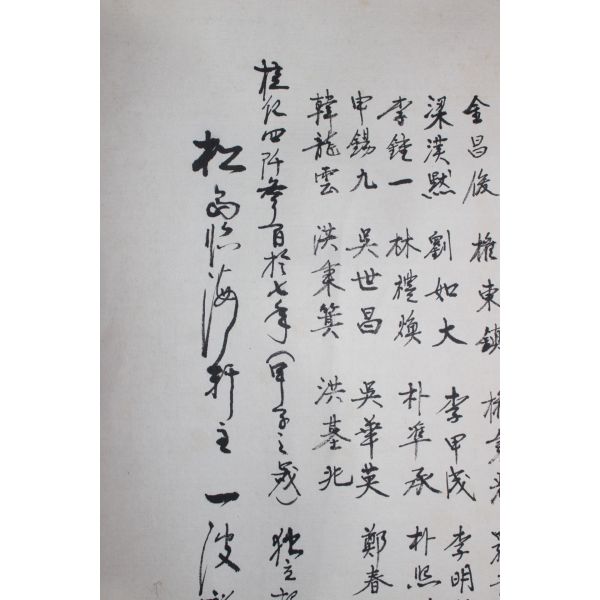 金昌俊 權東鎭
梁漢黙 劉如大 李甲成 李明
李鍾一 林禮煥 朴準承 朴熙
申錫九 吳世昌 吳華英 鄭春
韓龍雲 洪秉箕 洪基兆
檀紀四阡參百拾七年(甲子之歲) 独立
松島臨海軒主 一波